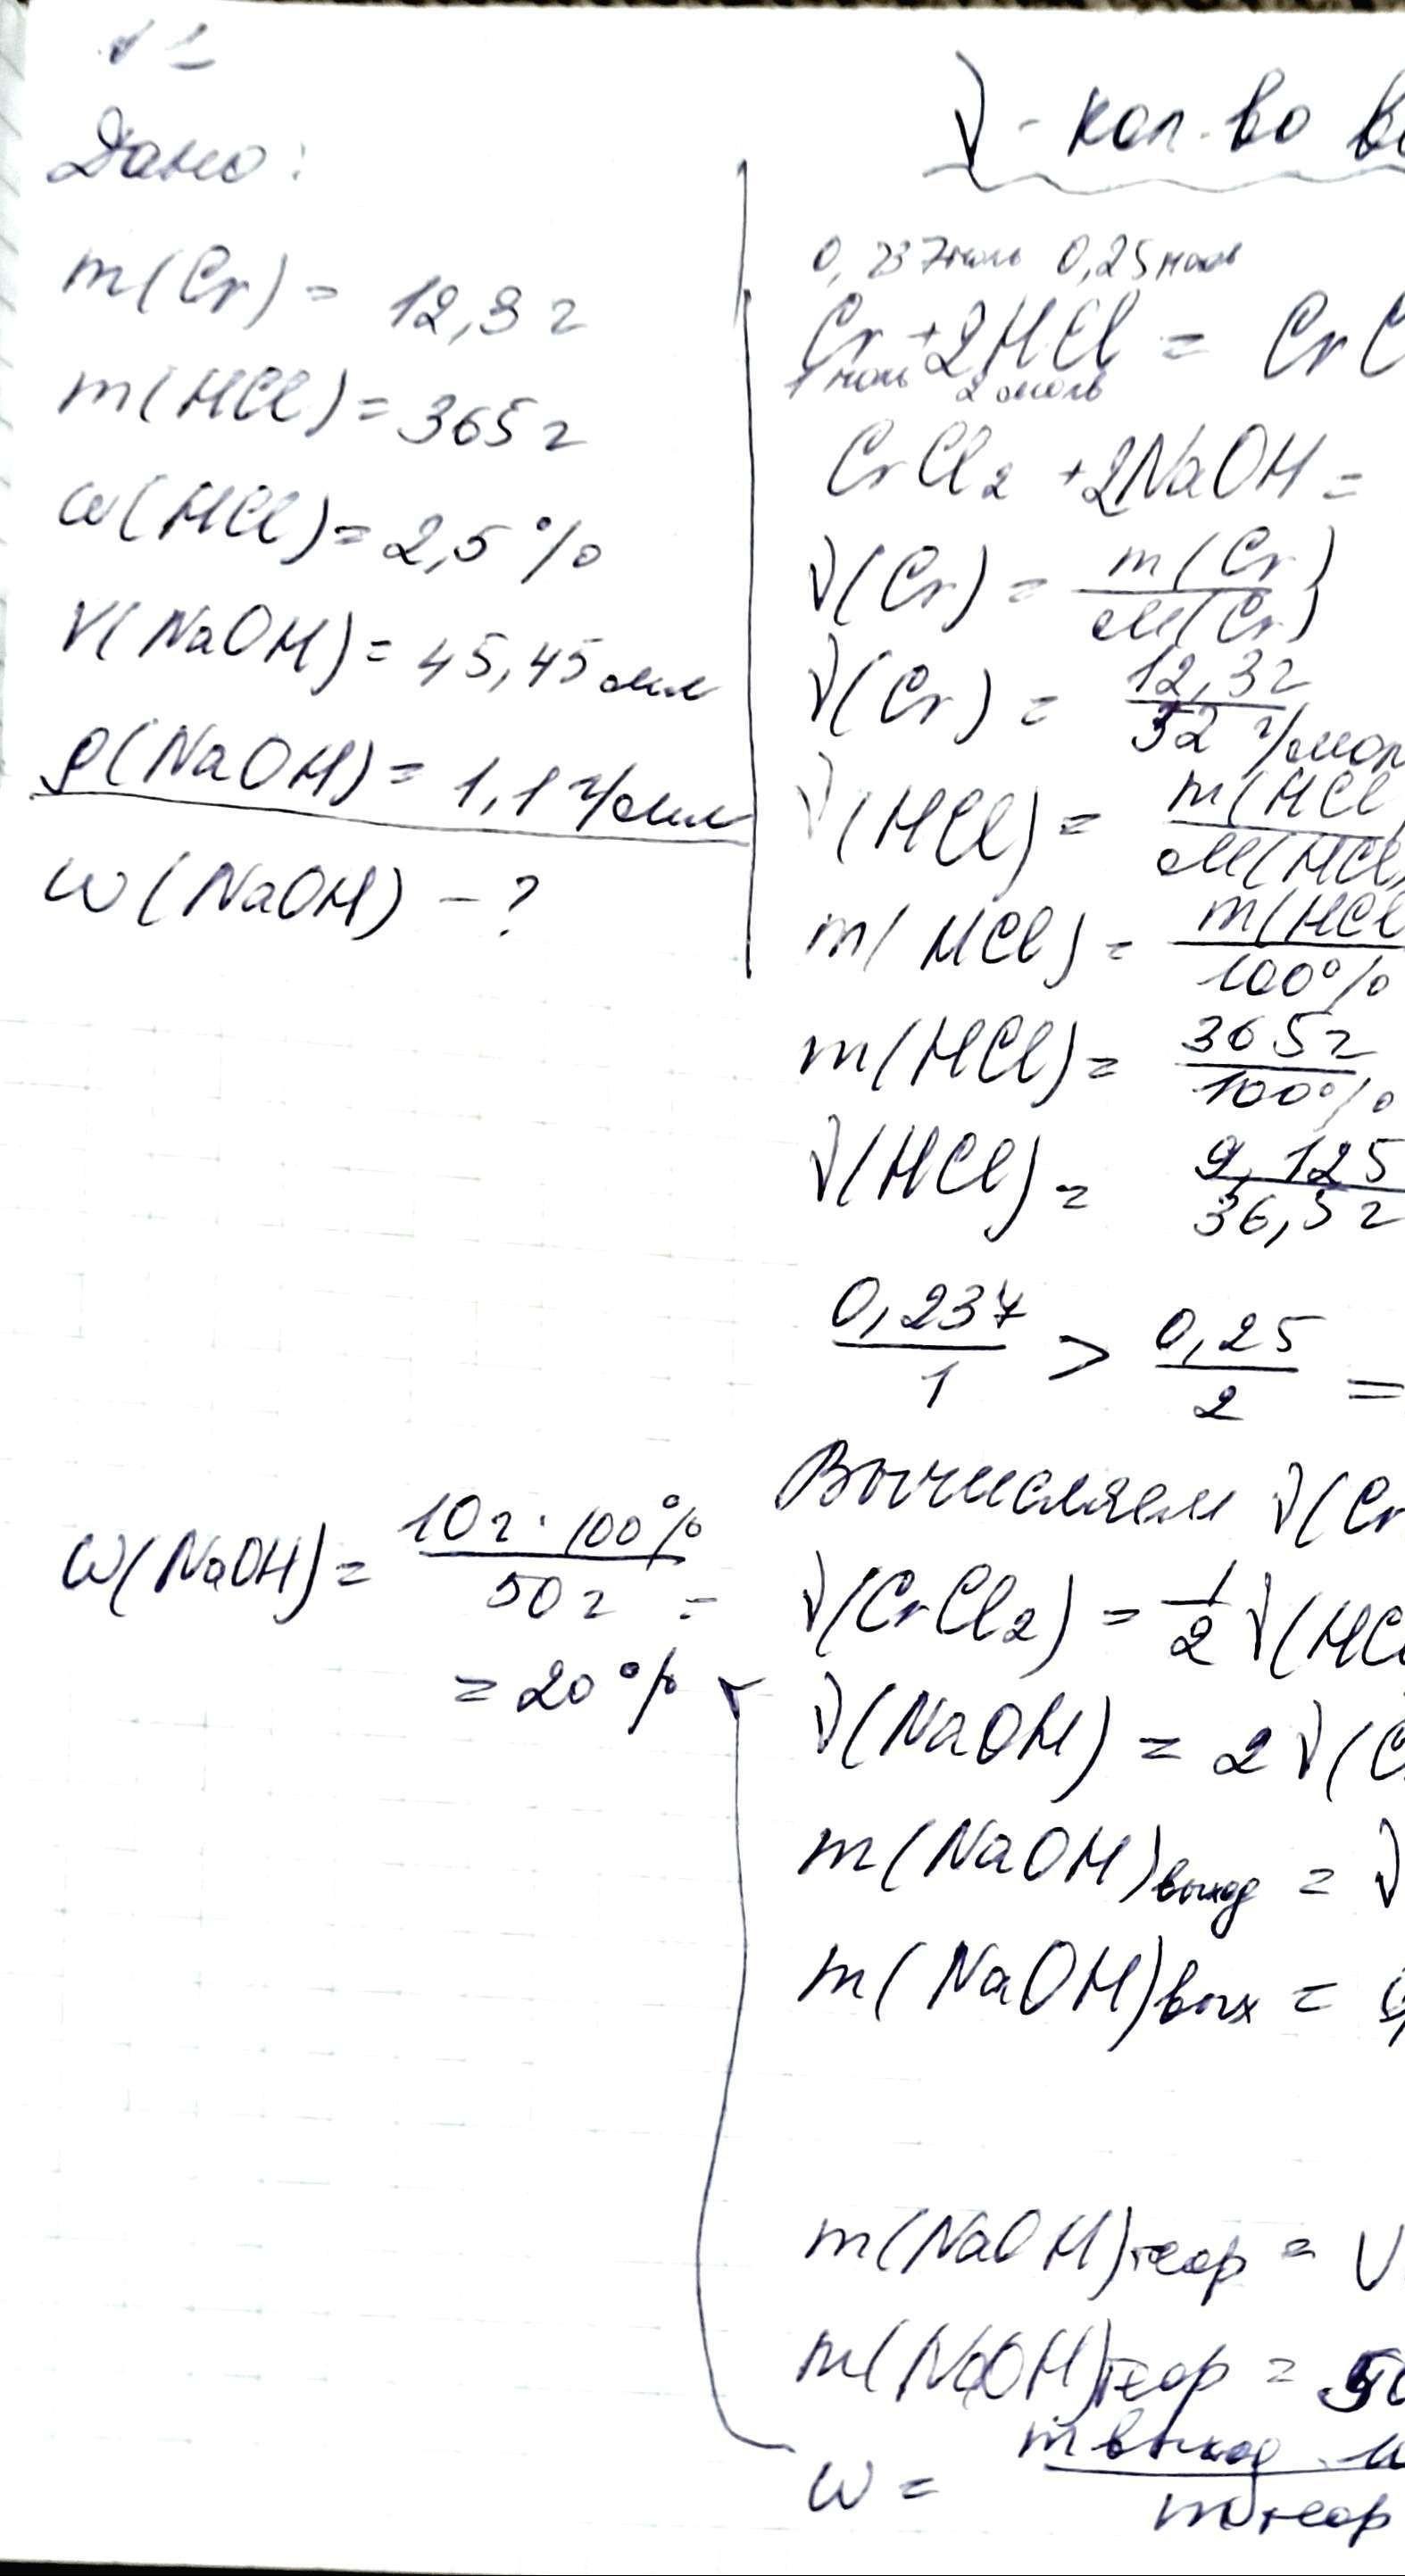 Дано:
m(Cr) = 12,3 г
m(HCl) = 365 г
ω(HCl) = 2,5 %
V(NaOH) = 45,45 мл
ρ(NaOH) = 1,1 г/мл
ω(NaOH) - ?
ω(NaOH) = 10 г · 100% / 50 г =
= 20 %
ν - кол-во в
0,237 моль 0,25 моль
Cr + 2HCl = CrC
1 моль 2 моль
CrCl2 + 2NaOH =
ν(Cr) = m(Cr) / M(Cr)
ν(Cr) = 12,3 г / 52 г/мол
ν(HCl) = m(HCl / M(HCl)
m(HCl) = m(HCl / 100%
m(HCl) = 365 г / 100%
ν(HCl) = 9,125 / 36,5 г
0,237 / 1 > 0,25 / 2 =
Вычисляем ν(Cr
ν(CrCl2) = 1/2 ν(HCl
ν(NaOH) = 2 ν(C
m(NaOH)выход = ν
m(NaOH)вых = 0,
m(NaOH)теор = V
m(NaOH)теор = 50
ω = m выход · 1 / m теор